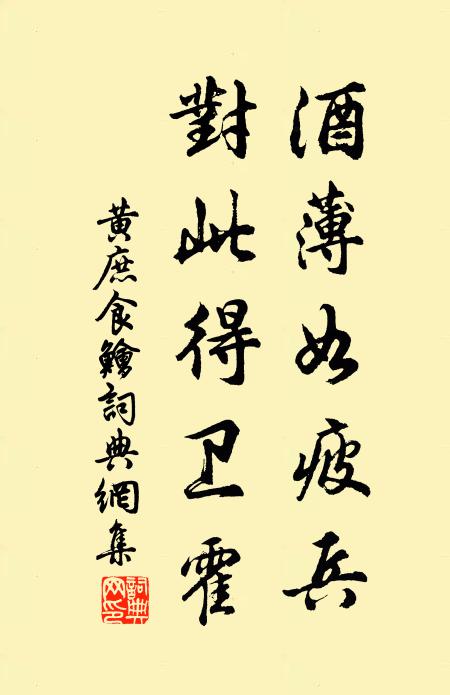 酒薄如疲兵
對此得卫霍
黄庶食鱠詞典網集
詞典网印